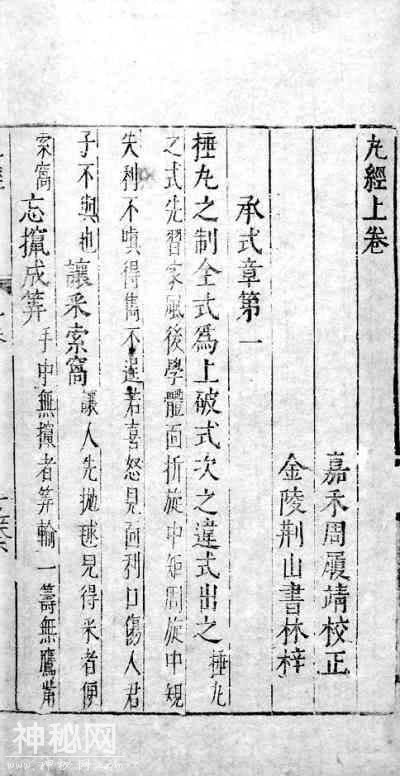 丸經上卷
嘉禾周履靖校正
金陵荆山書林梓
承式章第一
捶丸之制全式爲上破式次之違式出之捶丸
之式先習家風後學體面折旋中矩周旋中規
失利不嗔得雋不逞若喜怒見面利口傷人君
子不與也讓采索窩讓人先拋毬見得采者便
索窩忘攛成筭手中無攛者筭輸一籌無鷹觜
神秘网